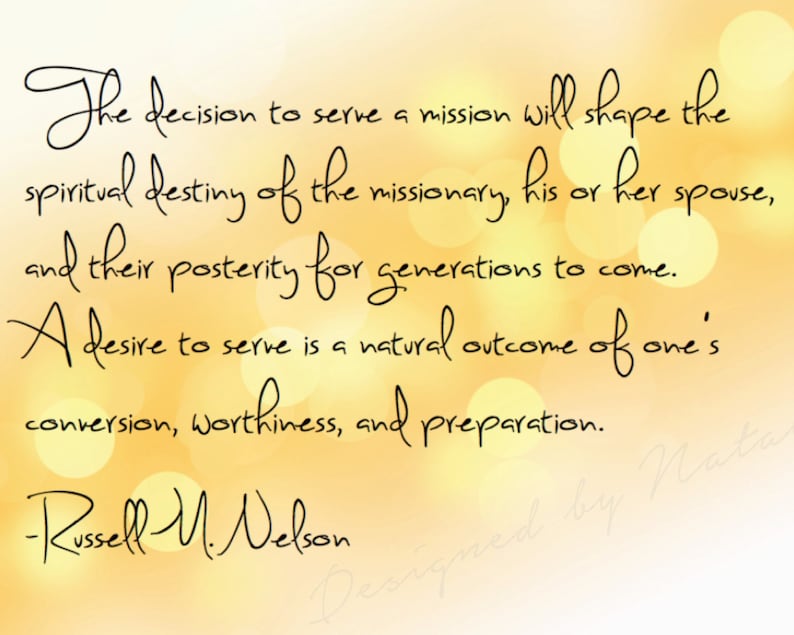 The decision to serve a mission will shape the
spiritual destiny of the missionary, his or her spouse,
and their posterity for generations to come.
A desire to serve is a natural outcome of one's
conversion, worthiness, and preparation.
-Russell M. Nelson
Designed by